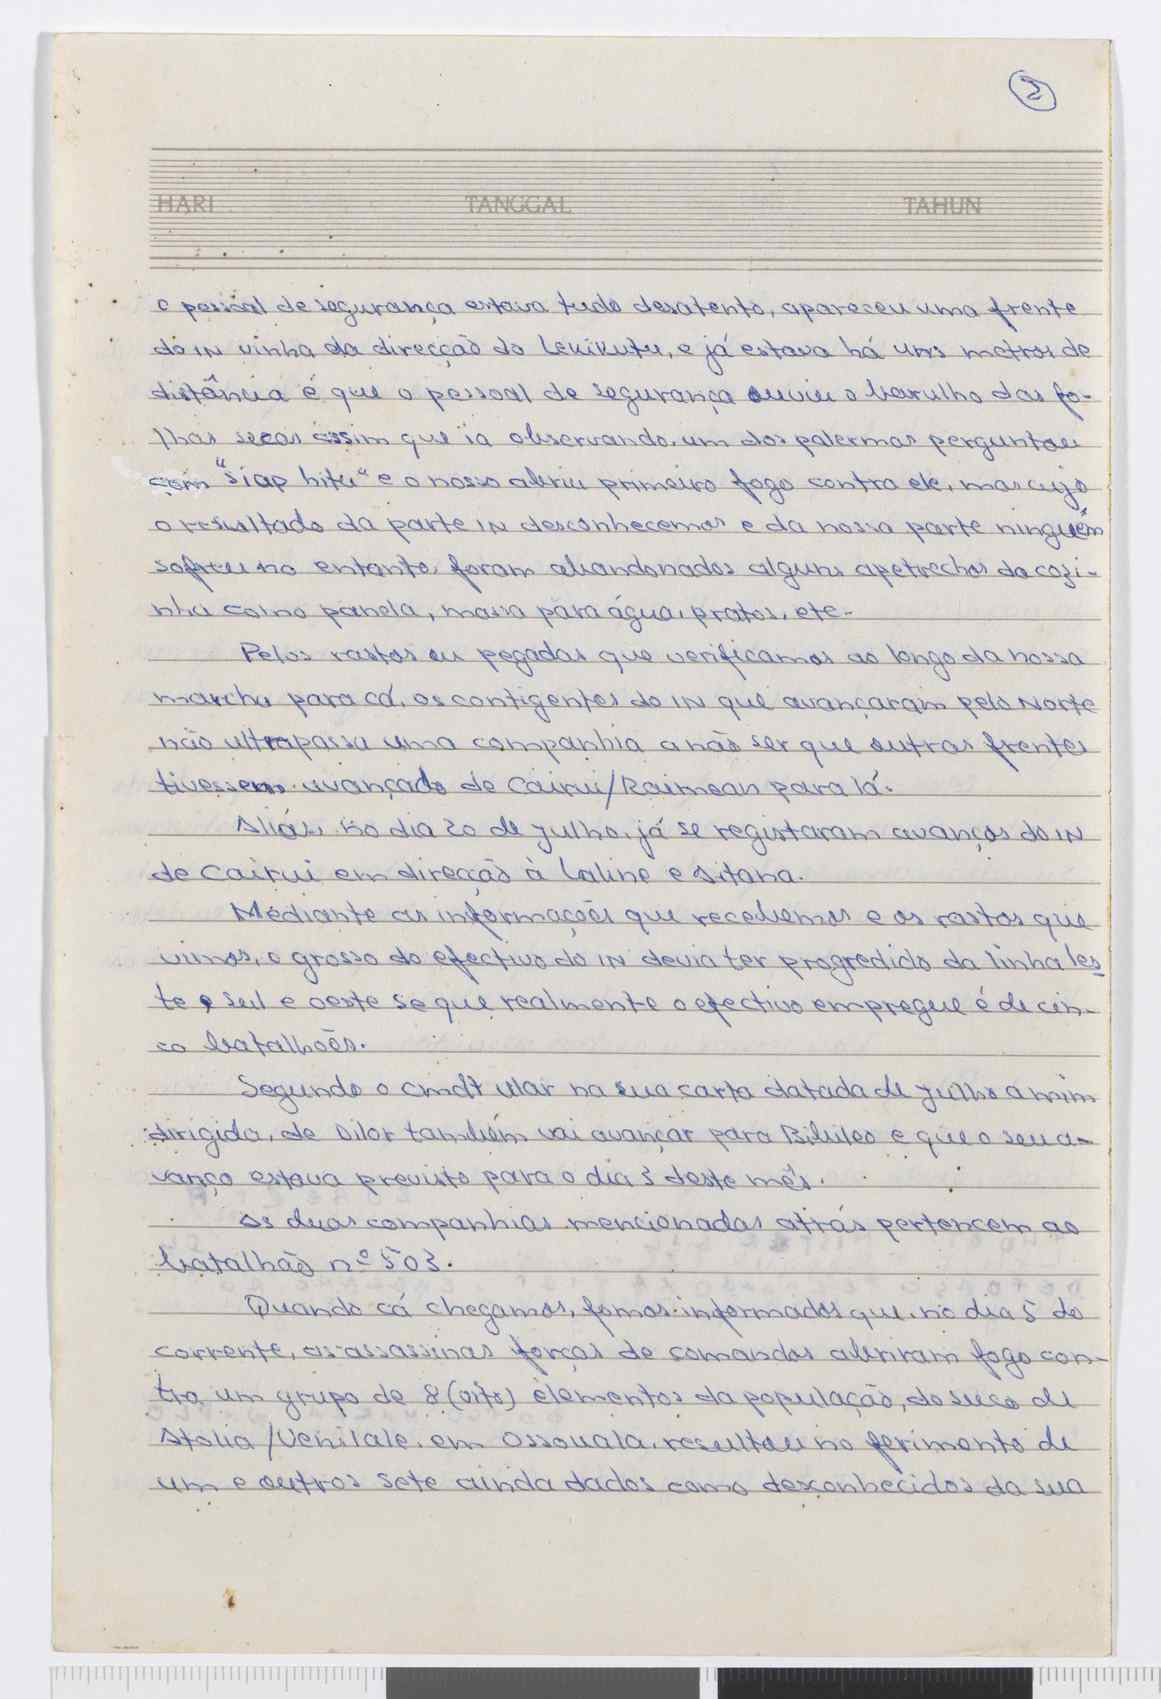 2
HARI TANGGAL TAHUN
o pessoal de segurança estava tudo desatento, apareceu uma frente
do IN vinha da direcção do Lekikutu, e já estava há uns metros de
distância é que o pessoal de segurança ouviu o barulho das fo-
lhas secas assim que ia observando, um dos palermas perguntou
com "siap hitu" e o nosso abriu primeiro fogo contra ele, mas cujo
o resultado da parte IN desconhecemos e da nossa parte ninguém
sofreu no entanto, foram abandonados alguns apetrechos da cozi-
nha como panela, massa para água, pratos, etc.
Pelos rastos ou pegadas que verificamos ao longo da nossa
marcha para cá, os contigentes do IN que avançaram pelo Norte
não ultrapassa uma companhia a não ser que outras frentes
tivessem avançado de Cairui/Raimean para lá.
Aliás, no dia 20 de julho, já se registaram avanços do IN
de Cairui em direcção à Laline e Sitana.
Mediante as informações que recebemos e os rastos que
vimos, o grosso do efectivo do IN devia ter progredido da linha les
te, sul e oeste se que realmente o efectivo empregue é de cin-
co batalhões.
Segundo o Cmdt Ular na sua carta datada de julho a mim
dirigida, de Dilor também vai avançar para Bibileo e que o seu a-
vanço estava previsto para o dia 3 deste mês.
As duas companhias mencionadas atrás pertencem ao
batalhão nº 503.
Quando cá chegamos, fomos informados que, no dia 5 do
corrente, as assassinas forças de comandos abriram fogo con-
tra um grupo de 8 (oito) elementos da população, do suco de
Atolia/Venilale, em Ossouala, resultou no ferimento de
um e outros sete ainda dados como desconhecidos da sua